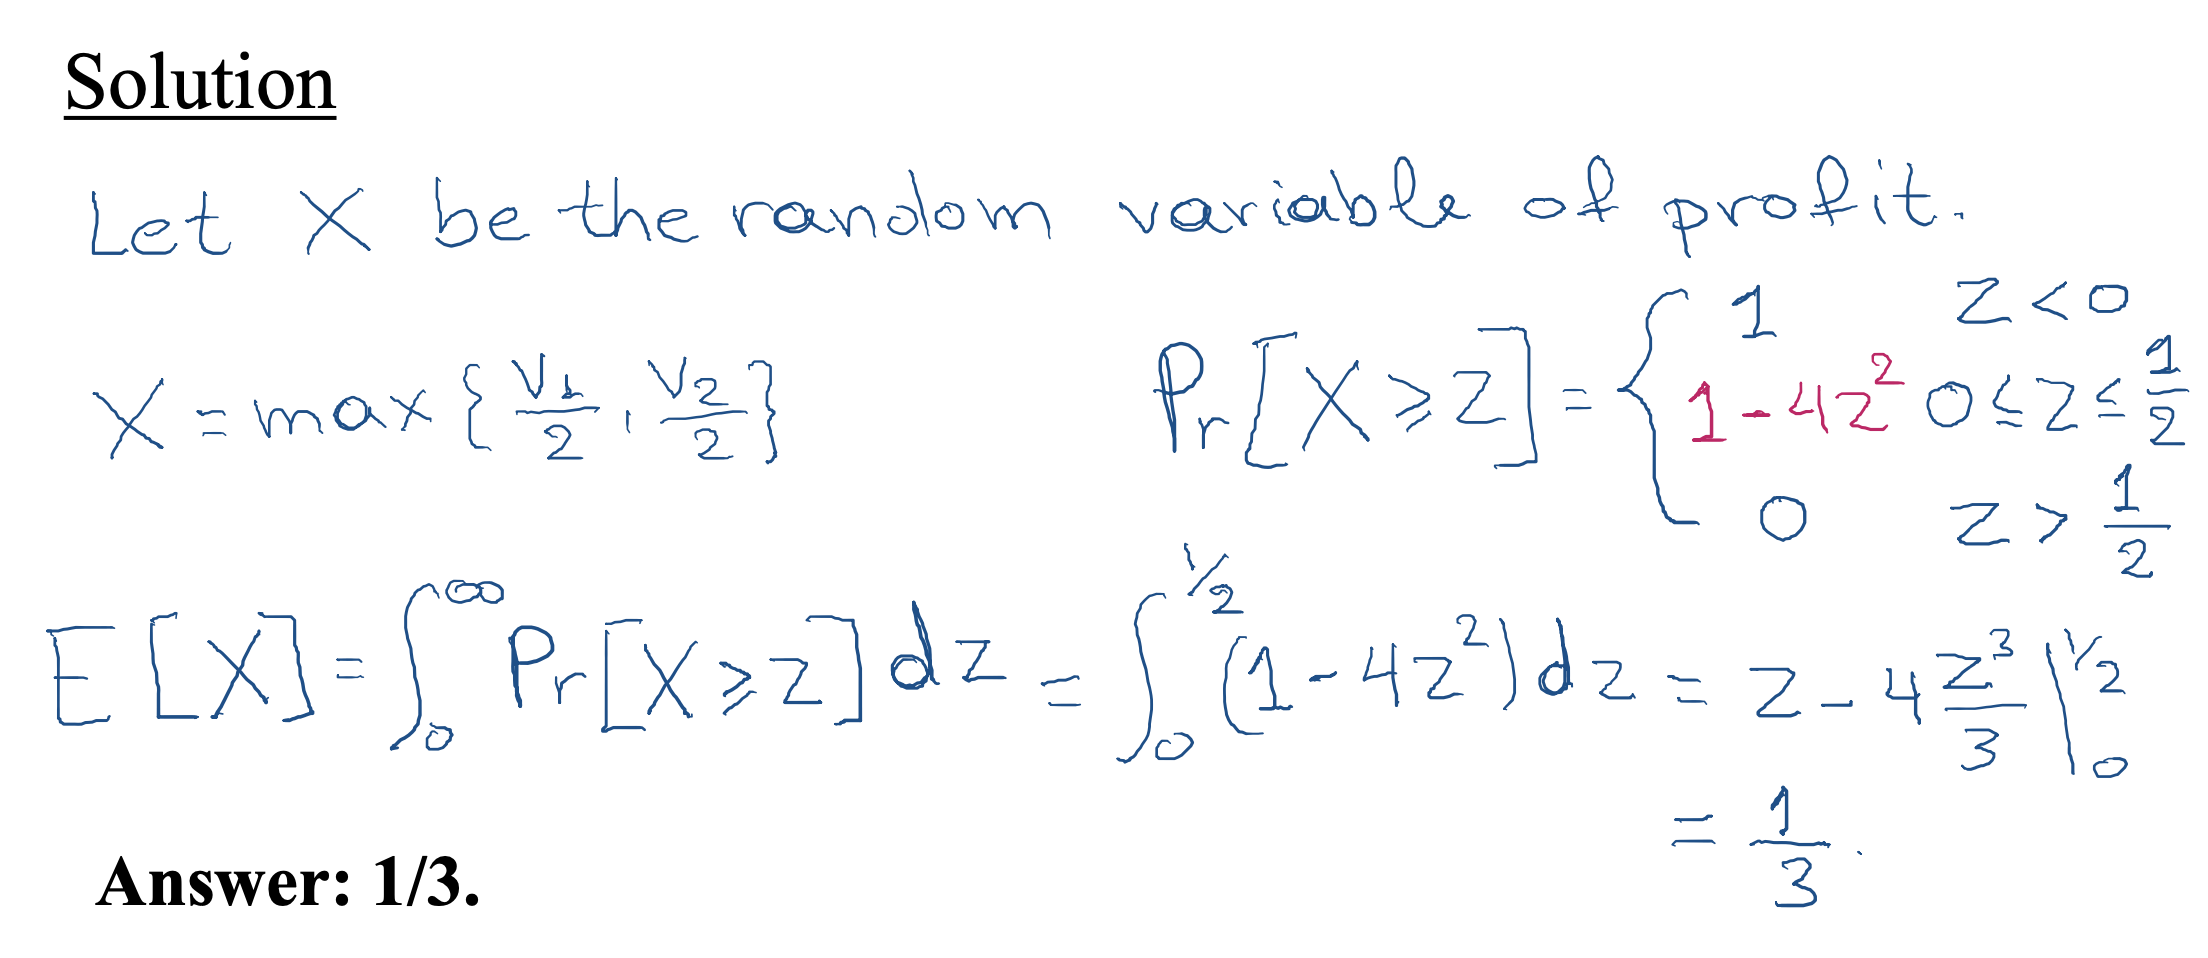 Solution
Let X be the random variable of profit.
X = max { V₁/2 , V₂/2 }
Pr[X ⩾ z] = { 1 z < 0
1 - 4z² 0 ≤ z ≤ 1/2
0 z > 1/2
E[X] = ∫₀^∞ Pr[X ⩾ z] dz = ∫₀^{1/2} (1 - 4z²) dz = z - 4 z³/3 |₀^{1/2}
= 1/3 .
Answer: 1/3.